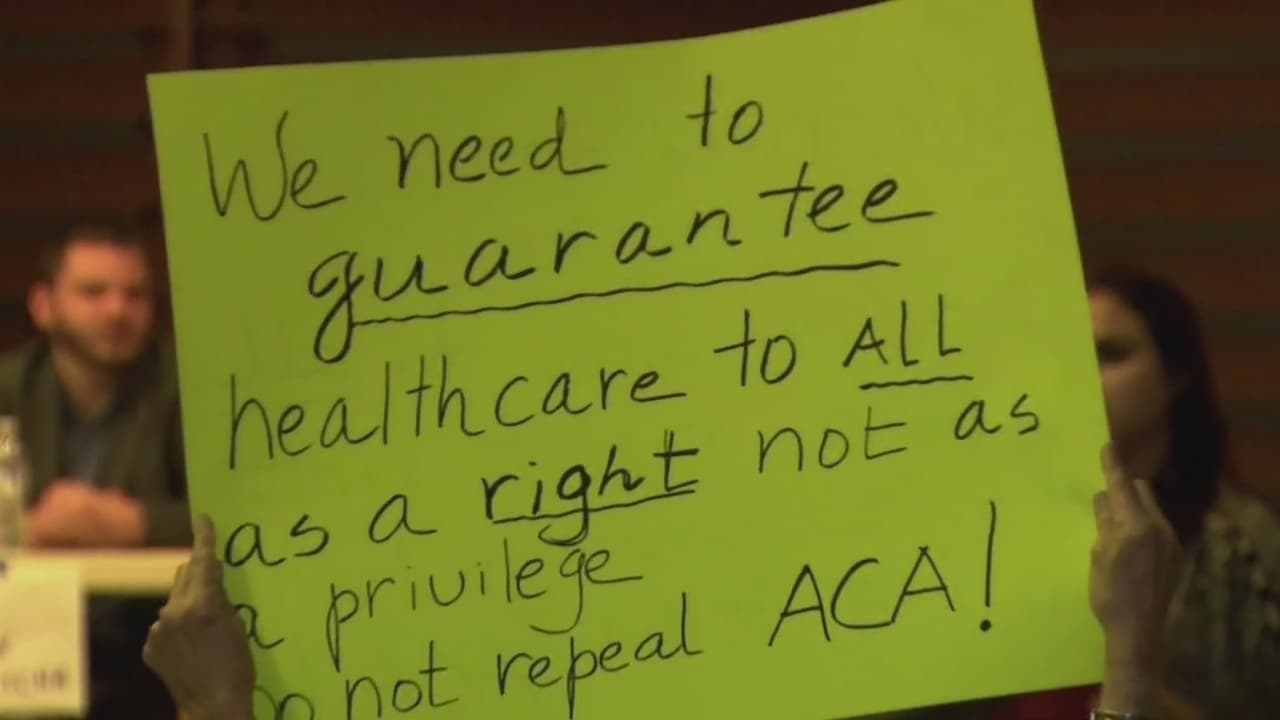 We need to
guarantee
healthcare to ALL
as a right not as
a privilege
Do not repeal ACA!